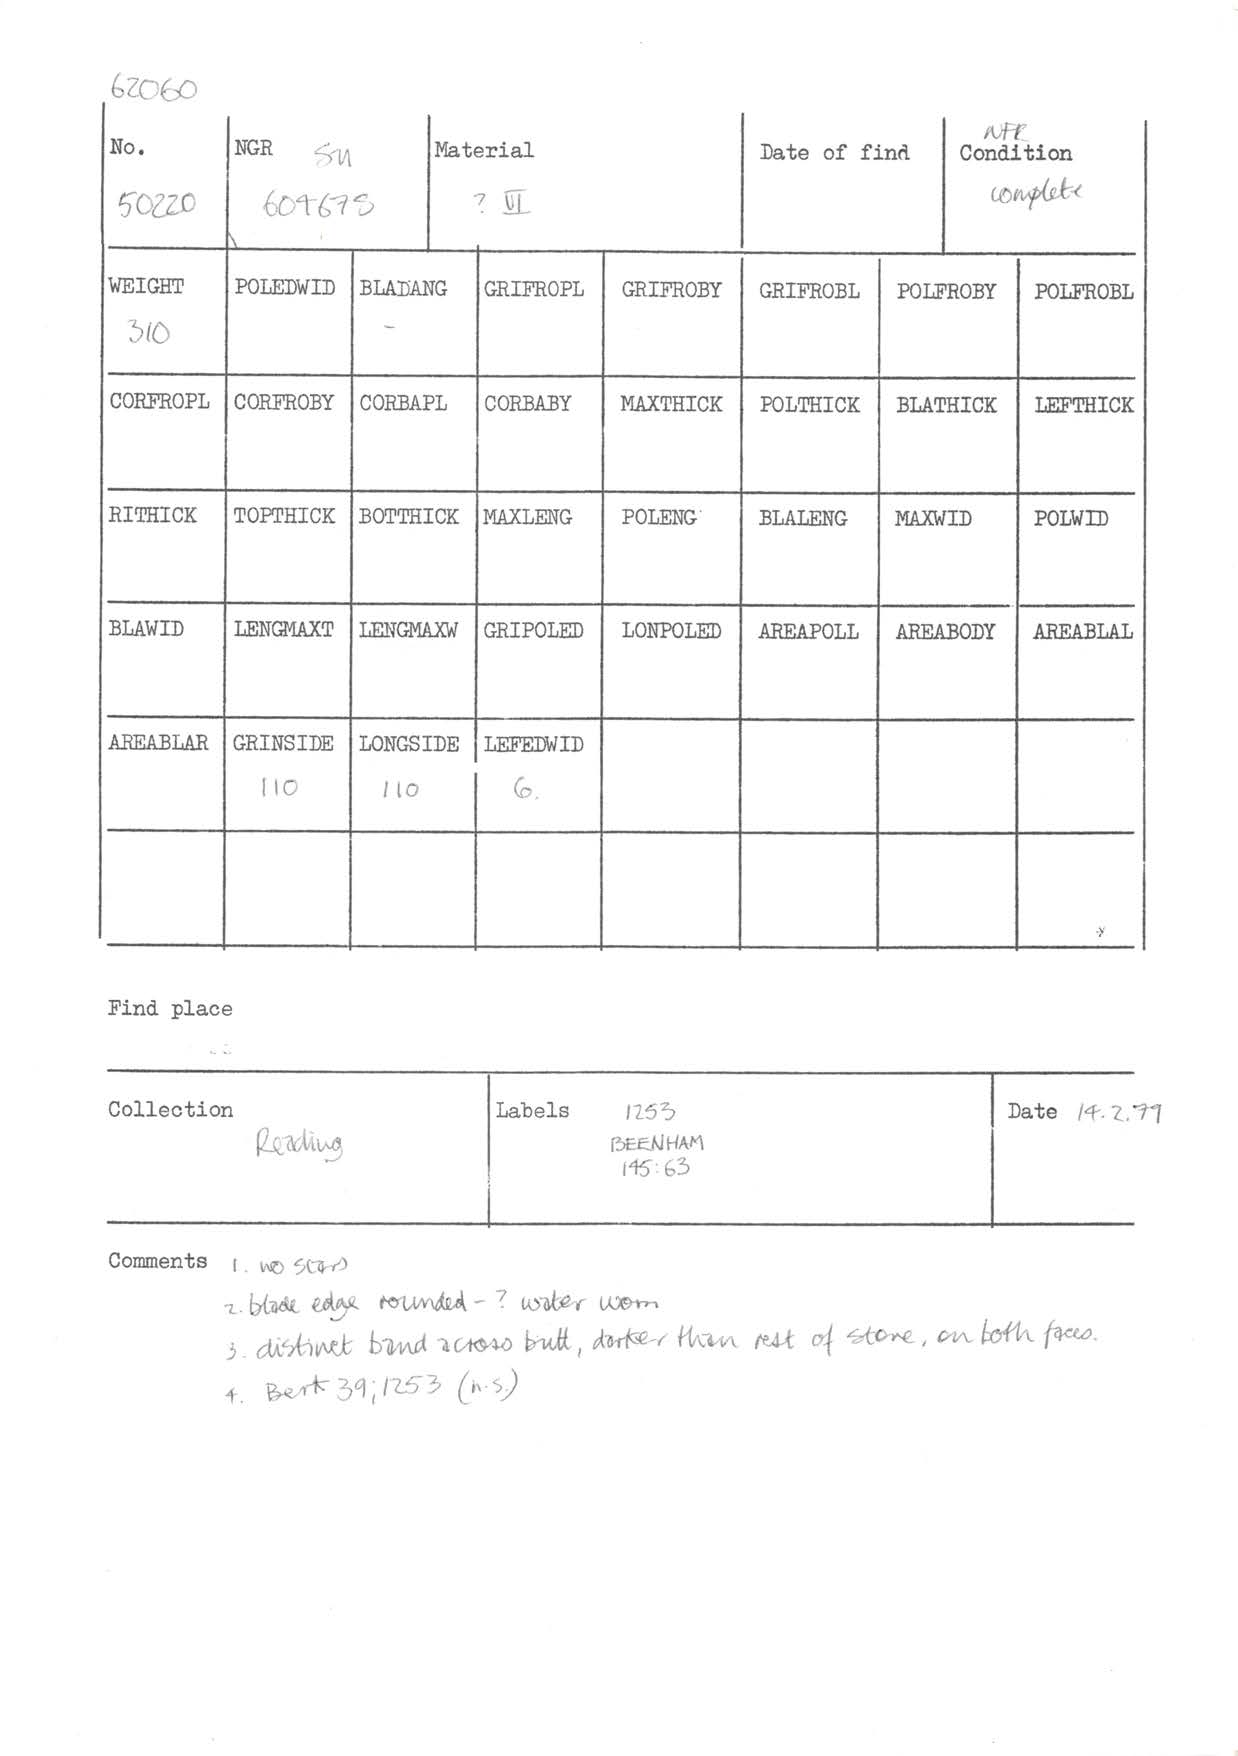 62060
No. NGR SU Material Date of find NFR Condition
50220 604678 ? VI complete
WEIGHT POLEDWID BLADANG GRIFROPL GRIFROBY GRIFROBL POLFROBY POLFROBL
310 -
CORFROPL CORFROBY CORBAPL CORBABY MAXTHICK POLTHICK BLATHICK LEFTHICK
RITHICK TOPTHICK BOTTHICK MAXLENG POLENG BLALENG MAXWID POLWID
BLAWID LENGMAXT LENGMAXW GRIPOLED LONPOLED AREAPOLL AREABODY AREABLAL
AREABLAR GRINSIDE LONGSIDE LEFEDWID
110 110 6.
Find place
Collection Labels 1253 Date 14.2.79
Reading BEENHAM
145:63
Comments 1. no scars
2. blade edge rounded - ? water worn
3. distinct band across butt, darker than rest of stone, on both faces.
4. Berk 39;1253 (n.s.)